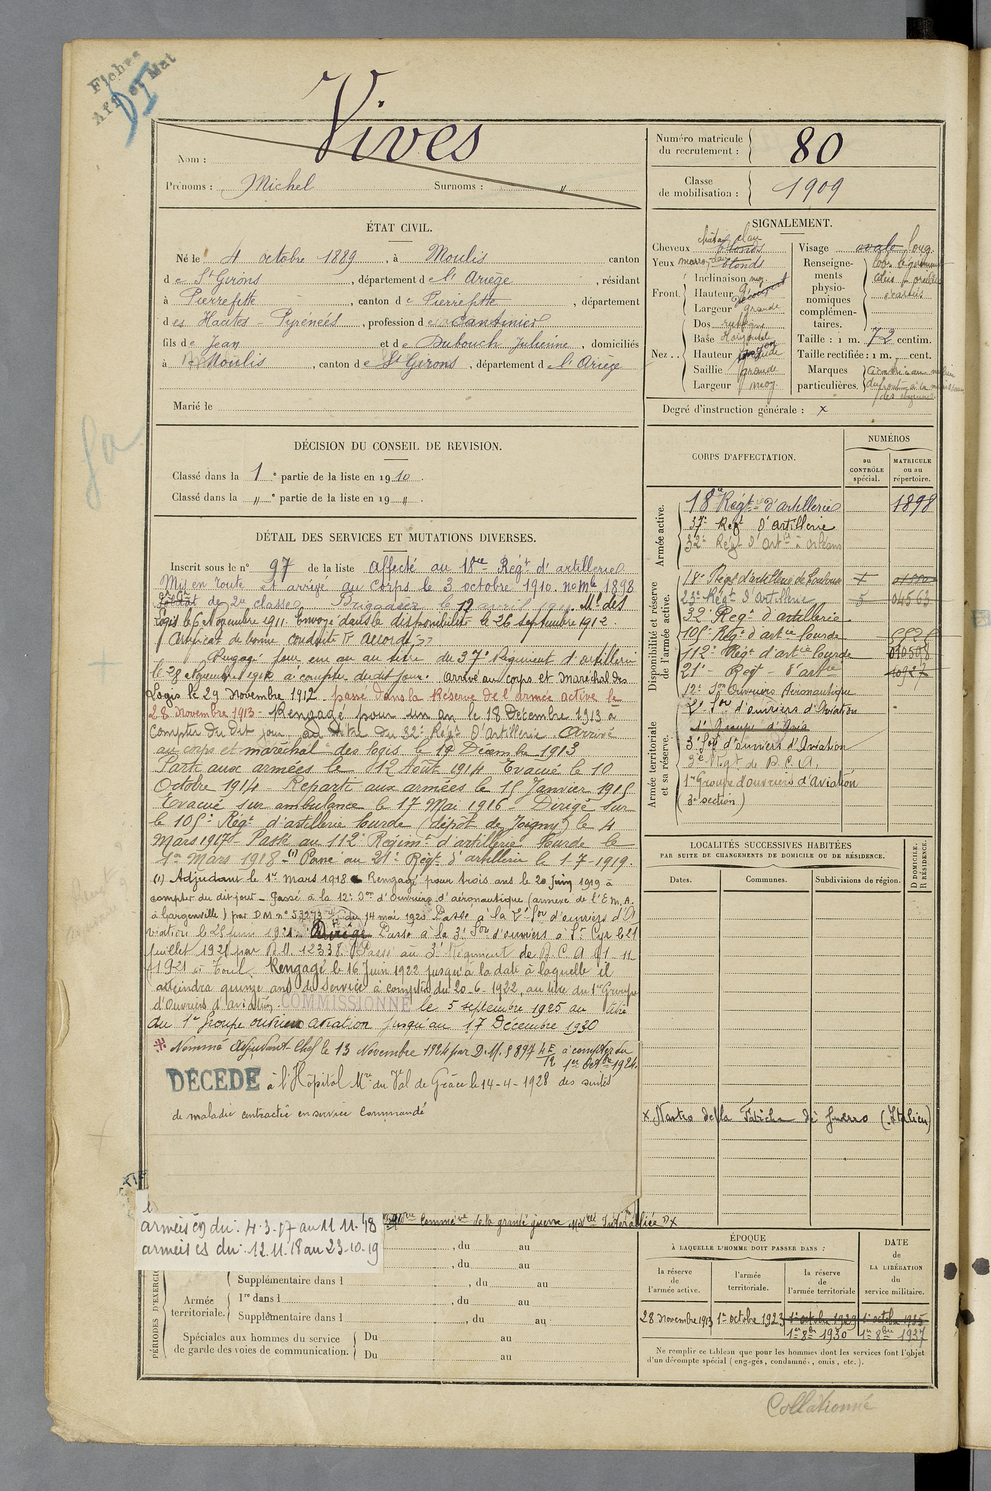 Fiches
Aff et Mat
DI
Vives
Nom :
Prénoms : Michel Surnoms : "
Numéro matricule
du recrutement : 80
Classe
de mobilisation : 1909
ÉTAT CIVIL.
Né le 4 octobre 1889, à Moulis canton
de St Girons, département de l'Ariège, résidant
à Pierrefitte, canton de Pierrefitte, département
des Hautes-Pyrénées, profession de Cantinier
fils de Jean et de Dubouch Julienne, domiciliés
à Moulis, canton de St Girons, département de l'Ariège
Marié le
SIGNALEMENT.
Cheveux châtain clair blonds
Yeux marron clair blonds
Front. Inclinaison moy.
Hauteur
Largeur grande
Nez. Dos
Base
Hauteur
Saillie grande
Largeur moy.
Visage ovale long
Renseigne-
ments
physio-
nomiques
complémen-
taires.
Taille : 1 m. 72 centim.
Taille rectifiée : 1 m. cent.
Marques
particulières.
Degré d'instruction générale : x
DÉCISION DU CONSEIL DE REVISION.
Classé dans la 1e partie de la liste en 1910.
Classé dans la " e partie de la liste en 19 " .
CORPS D'AFFECTATION.
NUMÉROS
au
CONTRÔLE
spécial.
MATRICULE
ou au
répertoire.
Armée active.
18e Régt d'artillerie 1898
37e Régt d'Artillerie
32e Régt d'Artie à Orléans
Disponibilité et réserve
de l'armée active.
18e Régt d'artillerie de Toulouse
23e Régt d'Artillerie 5 04563
32e Régt d'artillerie
105e Régt d'artie lourde
112e Régt d'artie lourde
21e Régt d'artie
12e Son Ouvriers Aéronautique
2e Son d'ouvriers d'Aviation
1er Groupe d'Avia
Armée territoriale
et sa réserve.
3e Son d'ouvriers d'Aviation
3e Régt de D.C.A.
1er Groupe d'ouvriers d'Aviation
(3e section)
DÉTAIL DES SERVICES ET MUTATIONS DIVERSES.
Inscrit sous le n° 97 de la liste Affecté au 18me Régt d'artillerie
Mis en route et arrivé au Corps le 3 octobre 1910. no Mle 1898
Soldat de 2e classe. Brigadier le 12 avril 1911. Mal des
logis le 6 Novembre 1911. Envoyé dans la disponibilité le 26 septembre 1912.
Certificat de bonne conduite "accordé"
Rengagé pour un an au titre du 37e Régiment d'artillerie
le 28 Novembre 1912 à compter dudit jour. Arrivé au corps et maréchal des
logis le 29 Novembre 1912. passé dans la Réserve de l'armée active le
28 novembre 1913 - Rengagé pour un an le 18 Décembre 1913 à
compter du dit jour, au titre du 32e Régt d'Artillerie. Arrivé
au corps et maréchal des logis le 19 Décembre 1913
Parti aux armées le 12 Août 1914 Evacué le 10
Octobre 1914 - Reparti aux armées le 15 Janvier 1915
Evacué sur ambulance le 17 Mai 1916 - Dirigé sur
le 105e Régt d'artillerie lourde (dépôt de Joigny) le 4
Mars 1917 Passé au 112e Régimt d'artillerie lourde le
1er Mars 1918 - (1) Passé au 21e Régt d'artillerie le 1-7-1919.
(1) Adjudant le 1er mars 1918 Rengagé pour trois ans le 20 juin 1919 à
compter du dit jour - Passé à la 12e Son d'Ouvriers d'aéronautique (annexe de l'E.M.A.
à Gargenville) par D.M. n° 53273 du 14 mai 1920 Passé à la 2e Son d'ouvriers d'A
viation le 25 juin 1921. Dirigé Passé à la 3e Son d'ouvriers à St Cyr le 21
juillet 1921 par D.M. 12338. Passé au 3e Régiment de D.C.A. 1-11
1921 à Toul. Rengagé le 16 Juin 1922 jusqu'à la date à laquelle il
atteindra quinze ans de service à compter du 20-6-1922, au titre du 1er Groupe
d'Ouvriers d'aviation. COMMISSIONNÉ le 5 septembre 1925 au titre
du 1er Groupe ouvriers aviation jusqu'au 17 Décembre 1930
Nommé Adjudant Chef le 13 Novembre 1924 par D.M. 8897 4E/12 à compter du
1er Octbre 1924.
DÉCÉDÉ à l'Hôpital Mre du Val de Grâce le 14-4-1928 des suites
de maladie contractée en service commandé
LOCALITÉS SUCCESSIVES HABITÉES
PAR SUITE DE CHANGEMENTS DE DOMICILE OU DE RÉSIDENCE.
Dates. Communes. Subdivisions de région.
D DOMICILE.
R RÉSIDENCE.
x Nastro della Fatiche di Guerro (Italien)
armées en du : 4.3.17 au 11.11.18
armées cs du : 12.11.18 au 23-10-19
Commve de la grande guerre Mlle Interalliée x
, du au
, du au
PÉRIODES D'EXERCI
Supplémentaire dans l , du au
Armée
territoriale.
1re dans l , du au
Supplémentaire dans l , du au
Spéciales aux hommes du service
de garde des voies de communication.
Du au
Du au
ÉPOQUE
À LAQUELLE L'HOMME DOIT PASSER DANS :
la réserve
de
l'armée active.
l'armée
territoriale.
la réserve
de
l'armée territoriale
DATE
de
LA LIBÉRATION
du
service militaire.
28 Novembre 1913 1er octobre 1923 1er octobre 1929 1er octobre 1935
1er 8bre 1930 1er 8bre 1937
Ne remplir ce tableau que pour les hommes dont les services font l'objet
d'un décompte spécial (engagés, condamnés, omis, etc.).
Collationné